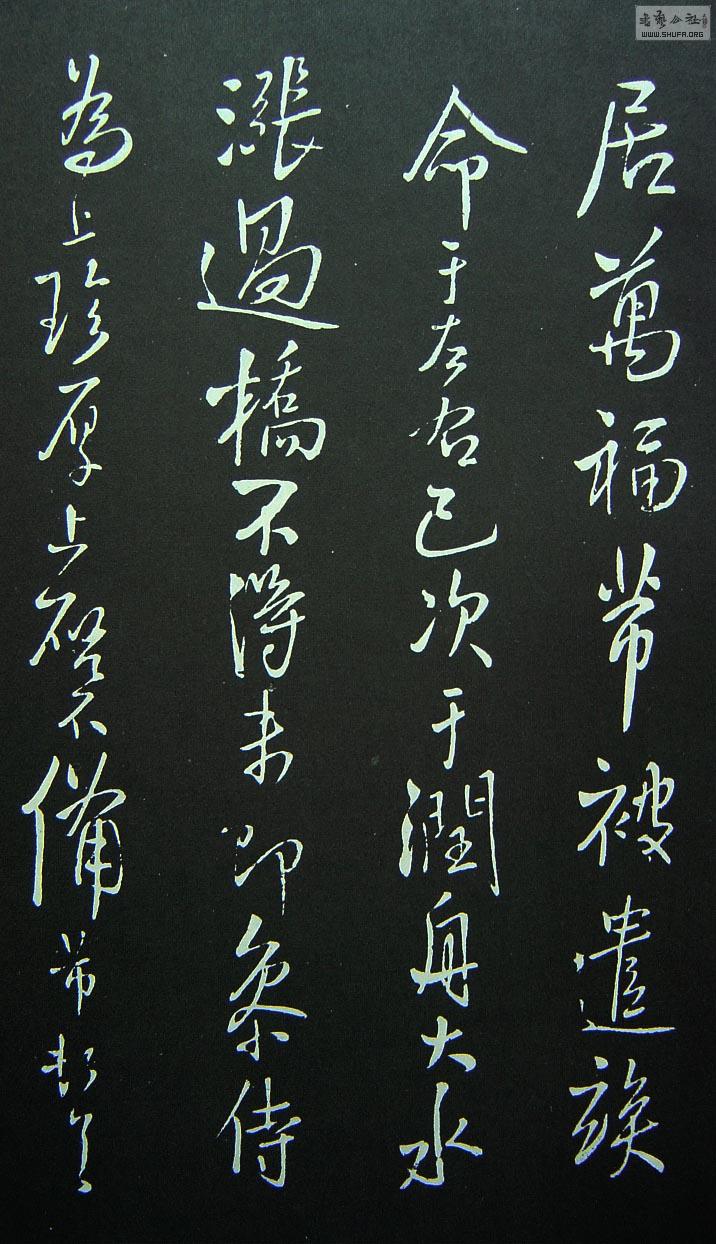 居萬福芾被遣竢
命于左右已次于潤舟大水
漲過橋不得未即參侍
為上珍厚上啓不備芾頓首
書藝公社
WWW.SHUFA.ORG